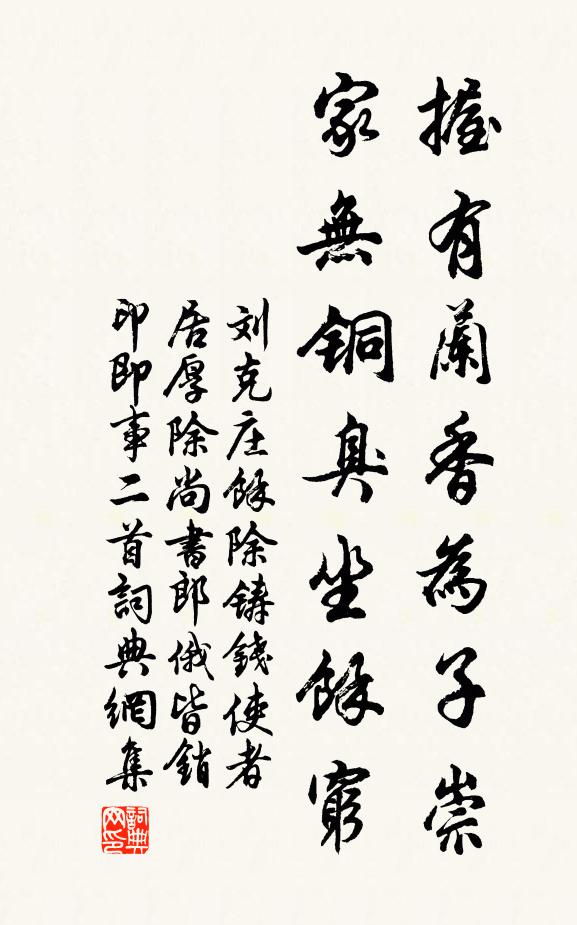 握有蘭香為子崇
家無銅臭坐餘窮
刘克庄餘除鑄錢使者
居厚除尚書郎俄皆銷
印即事二首詞典網集
詞典
网印